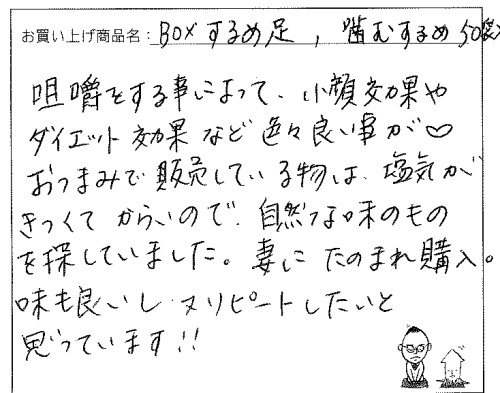 お買い上げ商品名：BOXするめ足，噛むするめ50袋入
咀嚼をする事によって、小顔効果や
ダイエット効果など色々良い事が♡
おつまみで販売している物は、塩気が
きつくてからいので、自然な味のもの
を探していました。妻にたのまれ購入。
味も良いし、又リピートしたいと
思っています!!